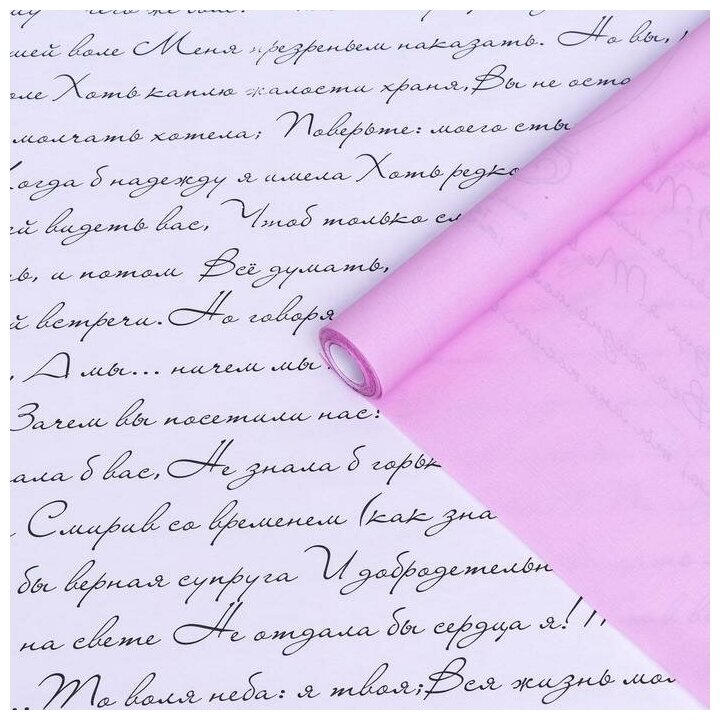 шей воле Меня презреньем наказать. Но вы,
оле Хоть каплю жалости храня, Вы не оста
молчать хотела; Поверьте: моего сты
Когда б надежду я имела Хоть редко
ей видеть вас, Чтоб только сл
ь, и потом Всё думать,
й встречи. Но говоря
, А мы... ничем мы
Зачем вы посетили нас?
ала б вас, Не знала б горьк
Смирив со временем (как зна
бы верная супруга И добродетельн
на свете Не отдала бы сердца я!
То воля неба: я твоя; Вся жизнь мо